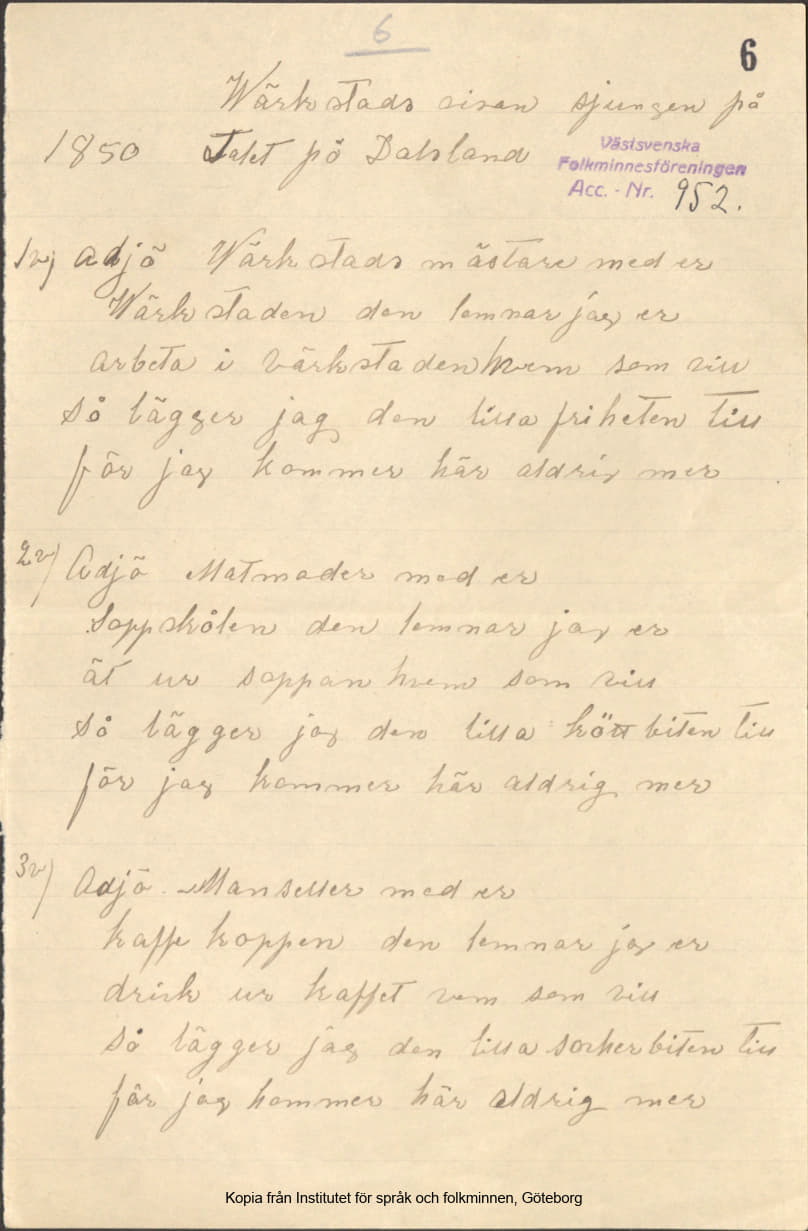 6
6
Wärkstads visan sjungen på
1850 Talet på Dalsland
Västsvenska
Folkminnesföreningen
Acc. - Nr. 952.
1v) adjö Wärkstads mästare med er
Wärkstaden den lemnar jag er
arbeta i värkstaden hvem som vill
så lägger jag den lilla friheten till
för jag kommer här aldrig mer
2v) Adjö Matmoder med er
Soppskålen den lemnar jag er
ät ur soppan hvem som vill
så lägger jag den lilla köttbiten till
för jag kommer här aldrig mer
3v) Adjö Manseller med er
kaffe koppen den lemnar jag er
drick ur kaffet vem som vill
så lägger jag den lilla sockerbiten till
för jag kommer här aldrig mer
Kopia från Institutet för språk och folkminnen, Göteborg